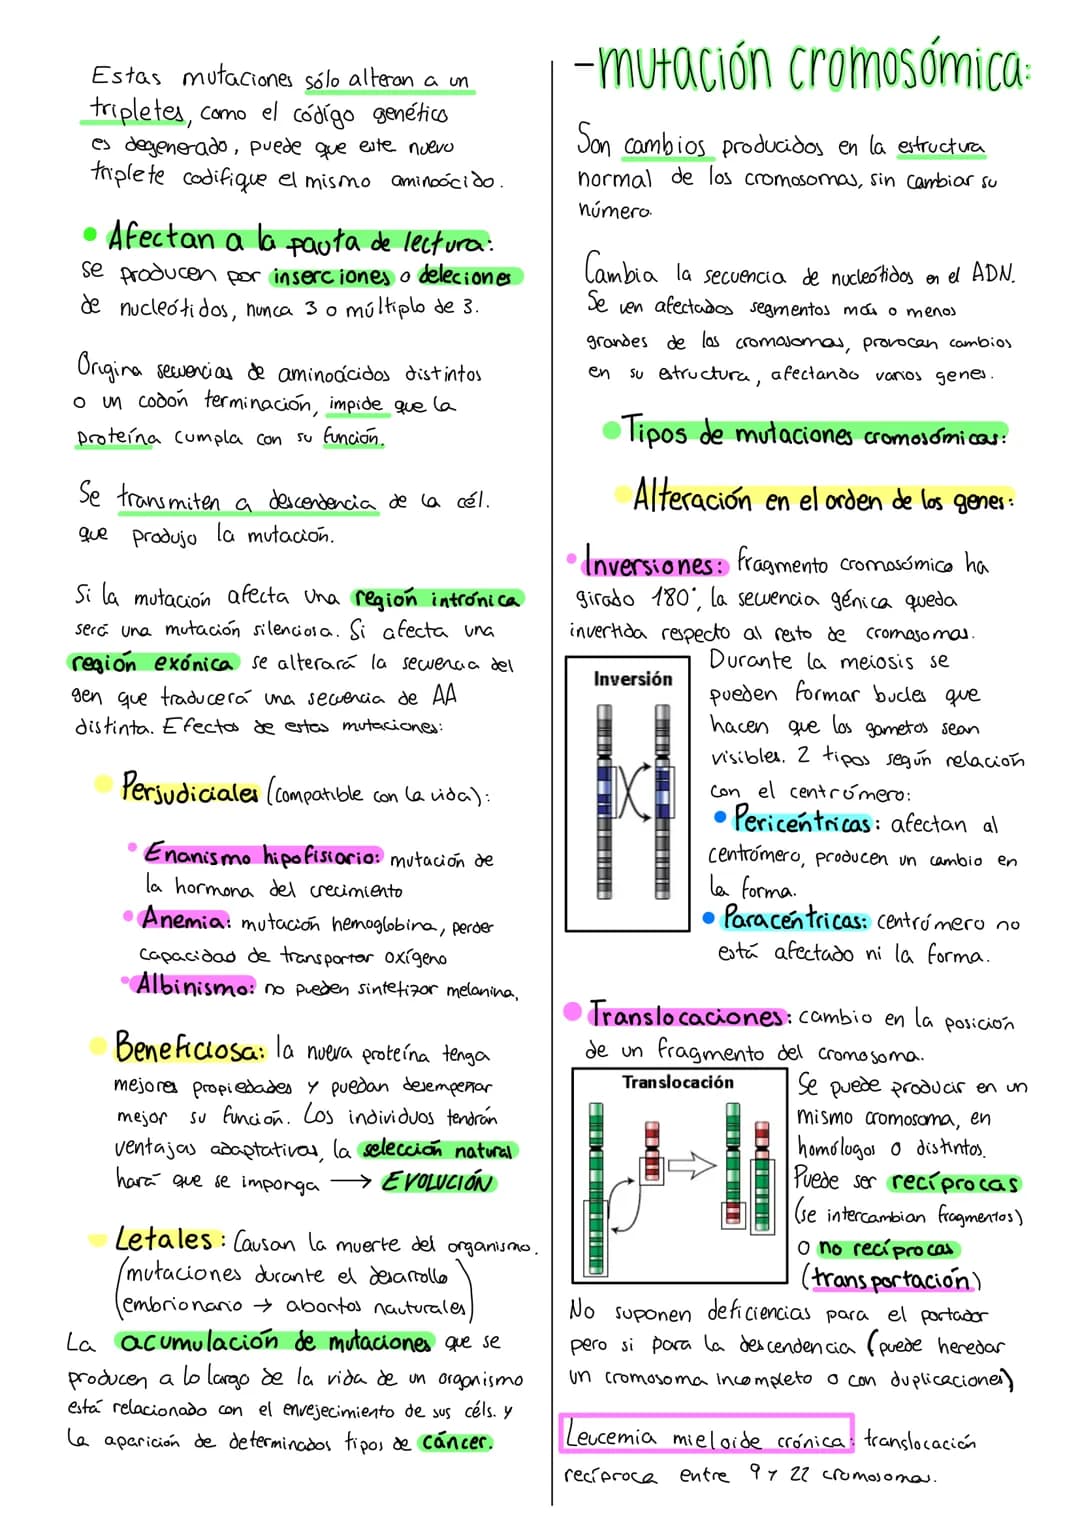 Estas mutaciones sólo alteran a un
tripletes, como el código genético
es degenerado, puede que este nuevo
triplete codifique el mismo aminoácido.
• Afectan a la pauta de lectura:
se producen por inserciones o deleciones
de nucleótidos, nunca 3 o múltiplo de 3.
Origina secuencias de aminoácidos distintos
o un codón terminación, impide que la
proteína cumpla con su función.
Se transmiten a descendencia de la cél.
que produjo la mutación.
Si la mutación afecta una región intrónica
será una mutación silenciosa. Si afecta una
región exónica se alterará la secuencia del
gen que traducerá una secuencia de AA
distinta. Efectos de estas mutaciones:
• Perjudiciales (compatible con la vida):
• Enanismo hipofisiario: mutación de
la hormona del crecimiento
• Anemia: mutación hemoglobina, perder
capacidad de transportar oxígeno
• Albinismo: no pueden sintetizar melanina,
• Beneficiosa: la nueva proteína tenga
mejores propiedades y puedan desempeñar
mejor su función. Los individuos tendrán
ventajas adaptativas, la selección natural
hará que se imponga → EVOLUCIÓN
• Letales: Causan la muerte del organismo.
(mutaciones durante el desarrollo
embrionario → abortos nauturales)
La acumulación de mutaciones que se
producen a lo largo de la vida de un organismo
está relacionado con el envejecimiento de sus céls. y
la aparición de determinados tipos de cáncer.
-mutación cromosómica:
Son cambios producidos en la estructura
normal de los cromosomas, sin cambiar su
número.
Cambia la secuencia de nucleótidos en el ADN.
Se ven afectados segmentos más o menos
grandes de los cromosomas, provocan cambios
en su estructura, afectando varios genes.
• Tipos de mutaciones cromosómicas:
• Alteración en el orden de los genes:
• Inversiones: fragmento cromosómico ha
girado 180°, la secuencia génica queda
invertida respecto al resto de cromosomas.
Inversión
Durante la meiosis se
pueden formar bucles que
hacen que los gametos sean
visibles. 2 tipos según relación
con el centrómero:
• Pericéntricas: afectan al
centrómero, producen un cambio en
la forma.
• Paracéntricas: centrómero no
está afectado ni la forma.
• Translocaciones: cambio en la posición
de un fragmento del cromosoma.
Translocación
Se puede producir en un
mismo cromosoma, en
homólogos o distintos.
Puede ser recíprocas
(se intercambian fragmentos)
o no recíprocas
(transportación)
No suponen deficiencias para el portador
pero si para la descendencia (puede heredar
un cromosoma incompleto o con duplicaciones)
Leucemia mieloide crónica: translocación
recíproca entre 9 y 22 cromosomas.